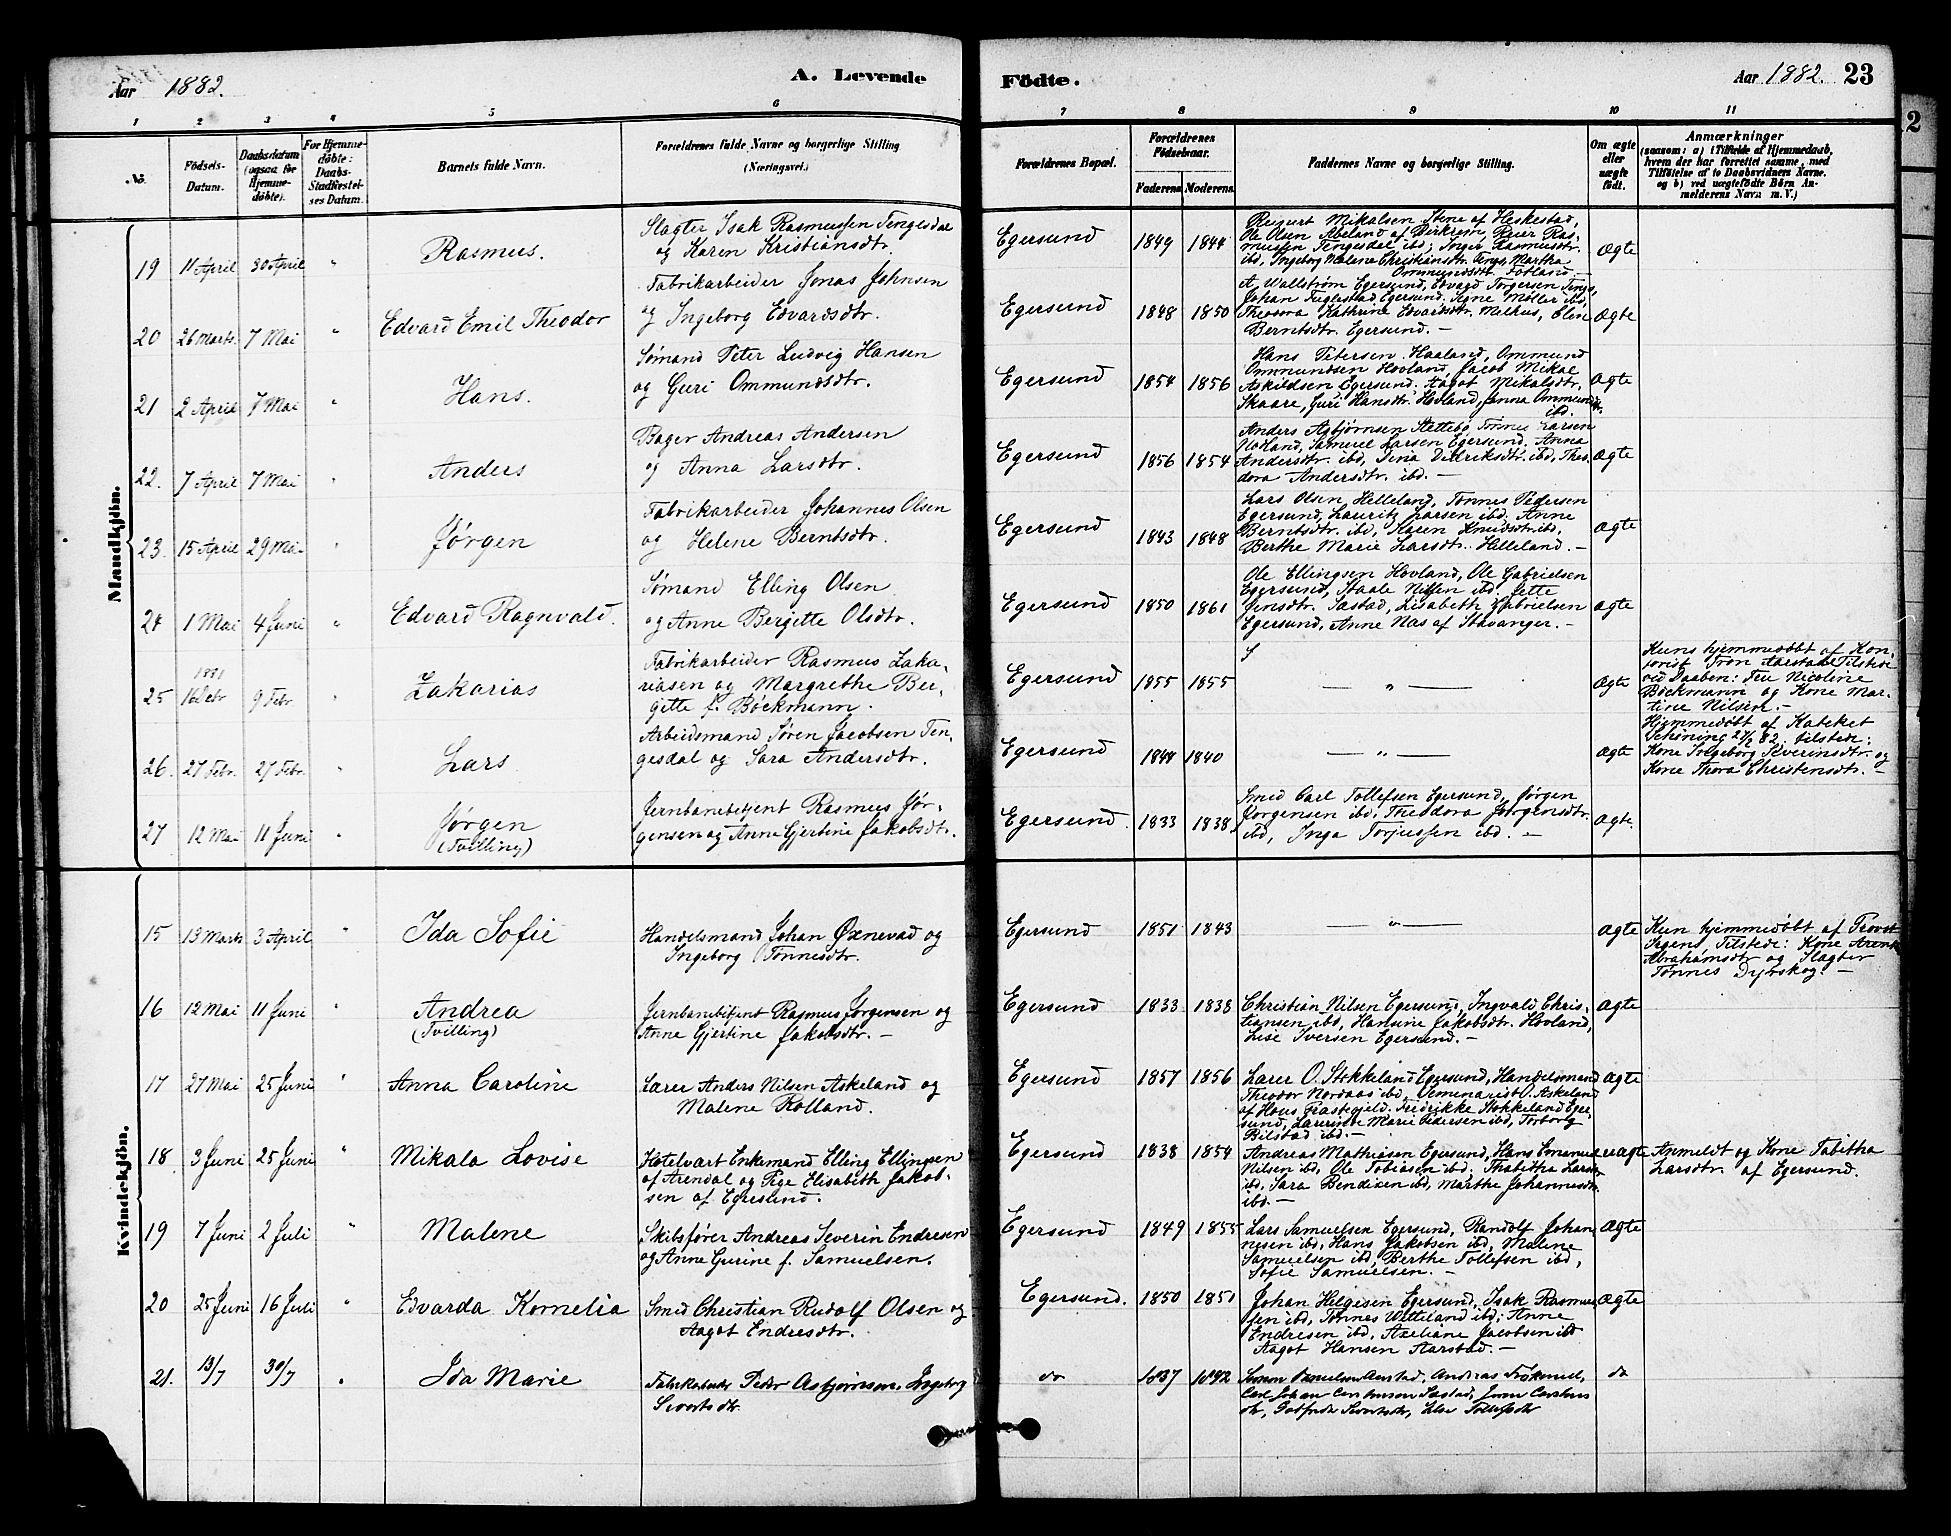 Aar 1882.
A. Levende
Födte.
Aar 1882. 23
1 2 3 4 5 6 7 8 9 10 11
No.
Födsels-Datum.
Daabsdatum (ogsaa for Hjemme-döbte).
For Hjemme-döbte: Daabs-Stadfæstel-ses Datum.
Barnets fulde Navn.
Forældrenes fulde Navne og borgerlige Stilling
(Næringsvei.)
Forældrenes Bopæl.
Forældrenes Födselsaar.
Faderens Moderens
Faddernes Navne og borgerlige Stilling.
Om ægte eller uægte födt.
Anmærkninger
(saasom: a) i Tilfælde af Hjemmedaab,
hvem der har forrettet samme, med
Tilföielse af to Daabsvidners Navne.
og b) ved uægtefödte Börn An-
melderens Navn m. V.)
Mandkjön.
19 11 April 30 April " Rasmus.
Slagter Isak Rasmussen Tengesdal
og Karen Kristiansdtr.
Egersund 1849 1844
Ole Olsen Abeland af Birkrem, Reier Ras-
mussen Tengesdal ibd, Inger Rasmusdtr.
ibd, Ingeborg Malene Christiansdtr. Tengs, Martha
Ommundsdtr. Fotland.
Ægte
20 26 Marts. 7 Mai " Edvard Emil Theodor
Fabrikarbeider Jonas Johnsen
og Ingeborg Edvardsdtr.
Egersund 1848 1850
A. Wallstrøm Egersund, Edvard Torgersen Tengs,
Johan Fuglestad Egersund. Agne Møller ibd,
Theodora Kathrine Edvardsdtr. Melhus, Elen
Berntsdtr. Egersund. —
Ægte
21 2 April 7 Mai " Hans.
Sømand Peter Ludvig Hansen
og Guri Ommundsdtr.
Egersund 1854 1856
Hans Petersen Haaland, Ommund
Ommundsen Hovland, Jacob Mikal
Askildsen Egersund. Aagot Mikalsdtr.
Skaare, Guri Hansdtr. Hovland, Janna Ommundsdtr.
ibd.
Ægte
22. 7 April 7 Mai Anders
Bager Andreas Andersen
og Anna Larsdtr.
Egersund 1856 1854
Anders Asbjørnsen Slettebø, Tønnes Larsen
Nodland, Samuel Larsen Egersund. Anna
Andersdtr. ibd, Tina Didriksdtr. ibd, Theo-
dora Andersdtr. ibd. —
Ægte
23. 15 April 29 Mai " Jørgen
Fabrikarbeider Johannes Olsen
og Helene Berntsdtr.
Egersund 1843 1848
Lars Olsen Helleland, Tønnes Pedersen
Egersund, Lauritz Larsen ibd. Anne
Berntsdtr. ibd, Siren Knudsdtr. ibd,
Berthe Marie Larsdtr. Helleland. —
Ægte
24 1 Mai 4 Juni " Edvard Ragnvald.
Sømand Elling Olsen
og Anne Bergitte Olsdtr.
Egersund 1850 1861
Ole Ellingsen Hovland, Ole Gabrielsen
Egersund, Staale Nilsen ibd. Jette
Jensdtr. Sæstad, Lisabeth Gabrielsen
Egersund, Anne Næs af Stavanger. —
Ægte
25 1881 16 Debr 9 Febr. " Zakarias
Fabrikarbeider Rasmus Zaka-
riasen og Margrethe Ber-
gitte f. Böckmann.
Egersund 1855 1855 — " — Ægte
Kuns hjemmedøbt af Kon-
torist Tron Aarstad Tilstede
ved Daaben: Fru Nicoline
Böckmann og Kone Mar-
tine Nilsen. —
26. 27 Febr. 27 Febr. " Lars
Arbeidsmand Søren Jacobsen Ten-
gesdal og Sara Andersdtr.
Egersund 1844 1840 — " — Ægte
Hjemmedøbt af Kateket
Schöning 27/2 82. tilstede:
Kone Ingeborg Severinsdtr. og
Kone Thora Christensdtr. —
27 12 Mai 11 Juni " Jørgen
(Tvilling)
Jernbanebetjent Rasmus Jør-
gensen og Anne Gjertine Jakobsdtr.
Egersund. 1833 1838
Smed Carl Tollefsen Egersund, Jørgen
Jørgensen ibd, Theodora Jørgensdtr.
ibd, Inga Torjussen ibd. —
Ægte.
Kvindekjön.
15 13 Marts 3 April " Ida Sofie
Handelsmand Johan Øxnevad og
Ingeborg Tønnesdtr.
Egersund 1851 1843 — " — Ægte
Kun hjemmedøbt af Provst
Tilstede: Kone
Abrahamsdtr og Slagter
Tønnes Dyrskog —
16 12 Mai 11 Juni " Andrea
(Tvilling)
Jernbanebetjent Rasmus Jørgensen og
Anne Gjertine Jakobsdtr. —
Egersund 1833 1838
Christian Nilsen Egersund, Ingvald Chris-
tiansen ibd, Hansine Jakobsdtr. Hovland,
Lise Iversen Egersund. —
Ægte
17 27 Mai 25 Juni " Anna Caroline
Lærer Anders Nilsen Askeland og
Malene Rolland.
Egersund 1857 1856
Lærer O. Stokkeland Egersund, Handelsmand
Theodor Nordaas ibd, Semenarist O. Askeland
af Hous Præstegjeld. Fredrikke Stokkeland Eger-
sund, Laurine Marie Pedersen ibd, Torborg
Bilstad ibd. —
Ægte
18 3 Juni 25 Juni " Mikala Lovise
Hotelvært Enkemand Elling Ellingsen
af Arendal og Pige Elisabeth Jakob-
sen af Egersund.
Egersund 1838 1854
Andreas Mathiasen Egersund, Hans
Nilsen ibd, Ole Tobiasen ibd. Thabitha Larsdtr
ibd, Sara Bendixen ibd, Marthe Johannesdtr.
ibd. —
uægte
Anmeldt og Kone Tabitha
Larsdtr. af Egersund.
19 7 Juni 2 Juli " Malene
Skibsfører Andreas Severin Endresen
og Anne Gurine f. Samuelsen.
Egersund 1849 1855
Lars Samuelsen Egersund, Randolf Johan
nesen ibd, Hans Jakobsen ibd, Malene
Samuelsen ibd, Berthe Tollefsen ibd,
Sofie Samuelsen. —
Ægte
20 25 Juni 16 Juli " Edvarda Kornelia
Smed Christian Rudolf Olsen og
Aagot Endresdtr.
Egersund. 1850 1851
Johan Helgesen Egersund, Isak Rasmus
sen ibd, Tønnes Witteland ibd; Anne
Endresen ibd, Axeliane Jacobsen ibd
Aagot Hansen Aarstad. —
Ægte
21. 13/7 30/7 " Ida Marie
Fabrikarbeider Peder Asbjørnsen, Ingeborg
Sivertsdtr.
do 1837 1842
Simon Danielsen Aarstad, Andreas
Carl Johan Sæstad,
Sivertsdtr, Else Tollefsdtr
do